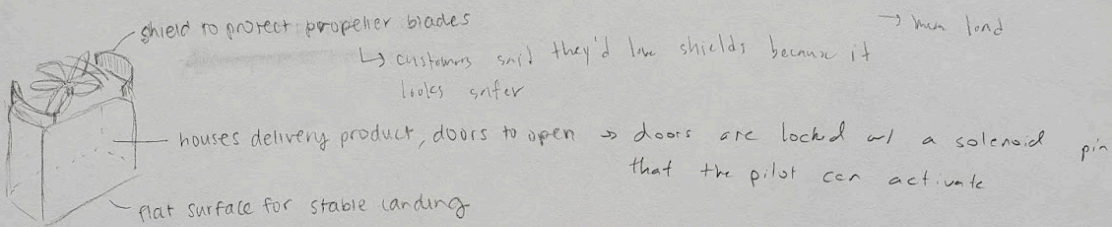 shield to protect propeller blades
↳ customers said they'd love shields because it
looks safer
houses delivery product, doors to open → doors are locked w/ a solenoid pin
that the pilot can activate
flat surface for stable landing